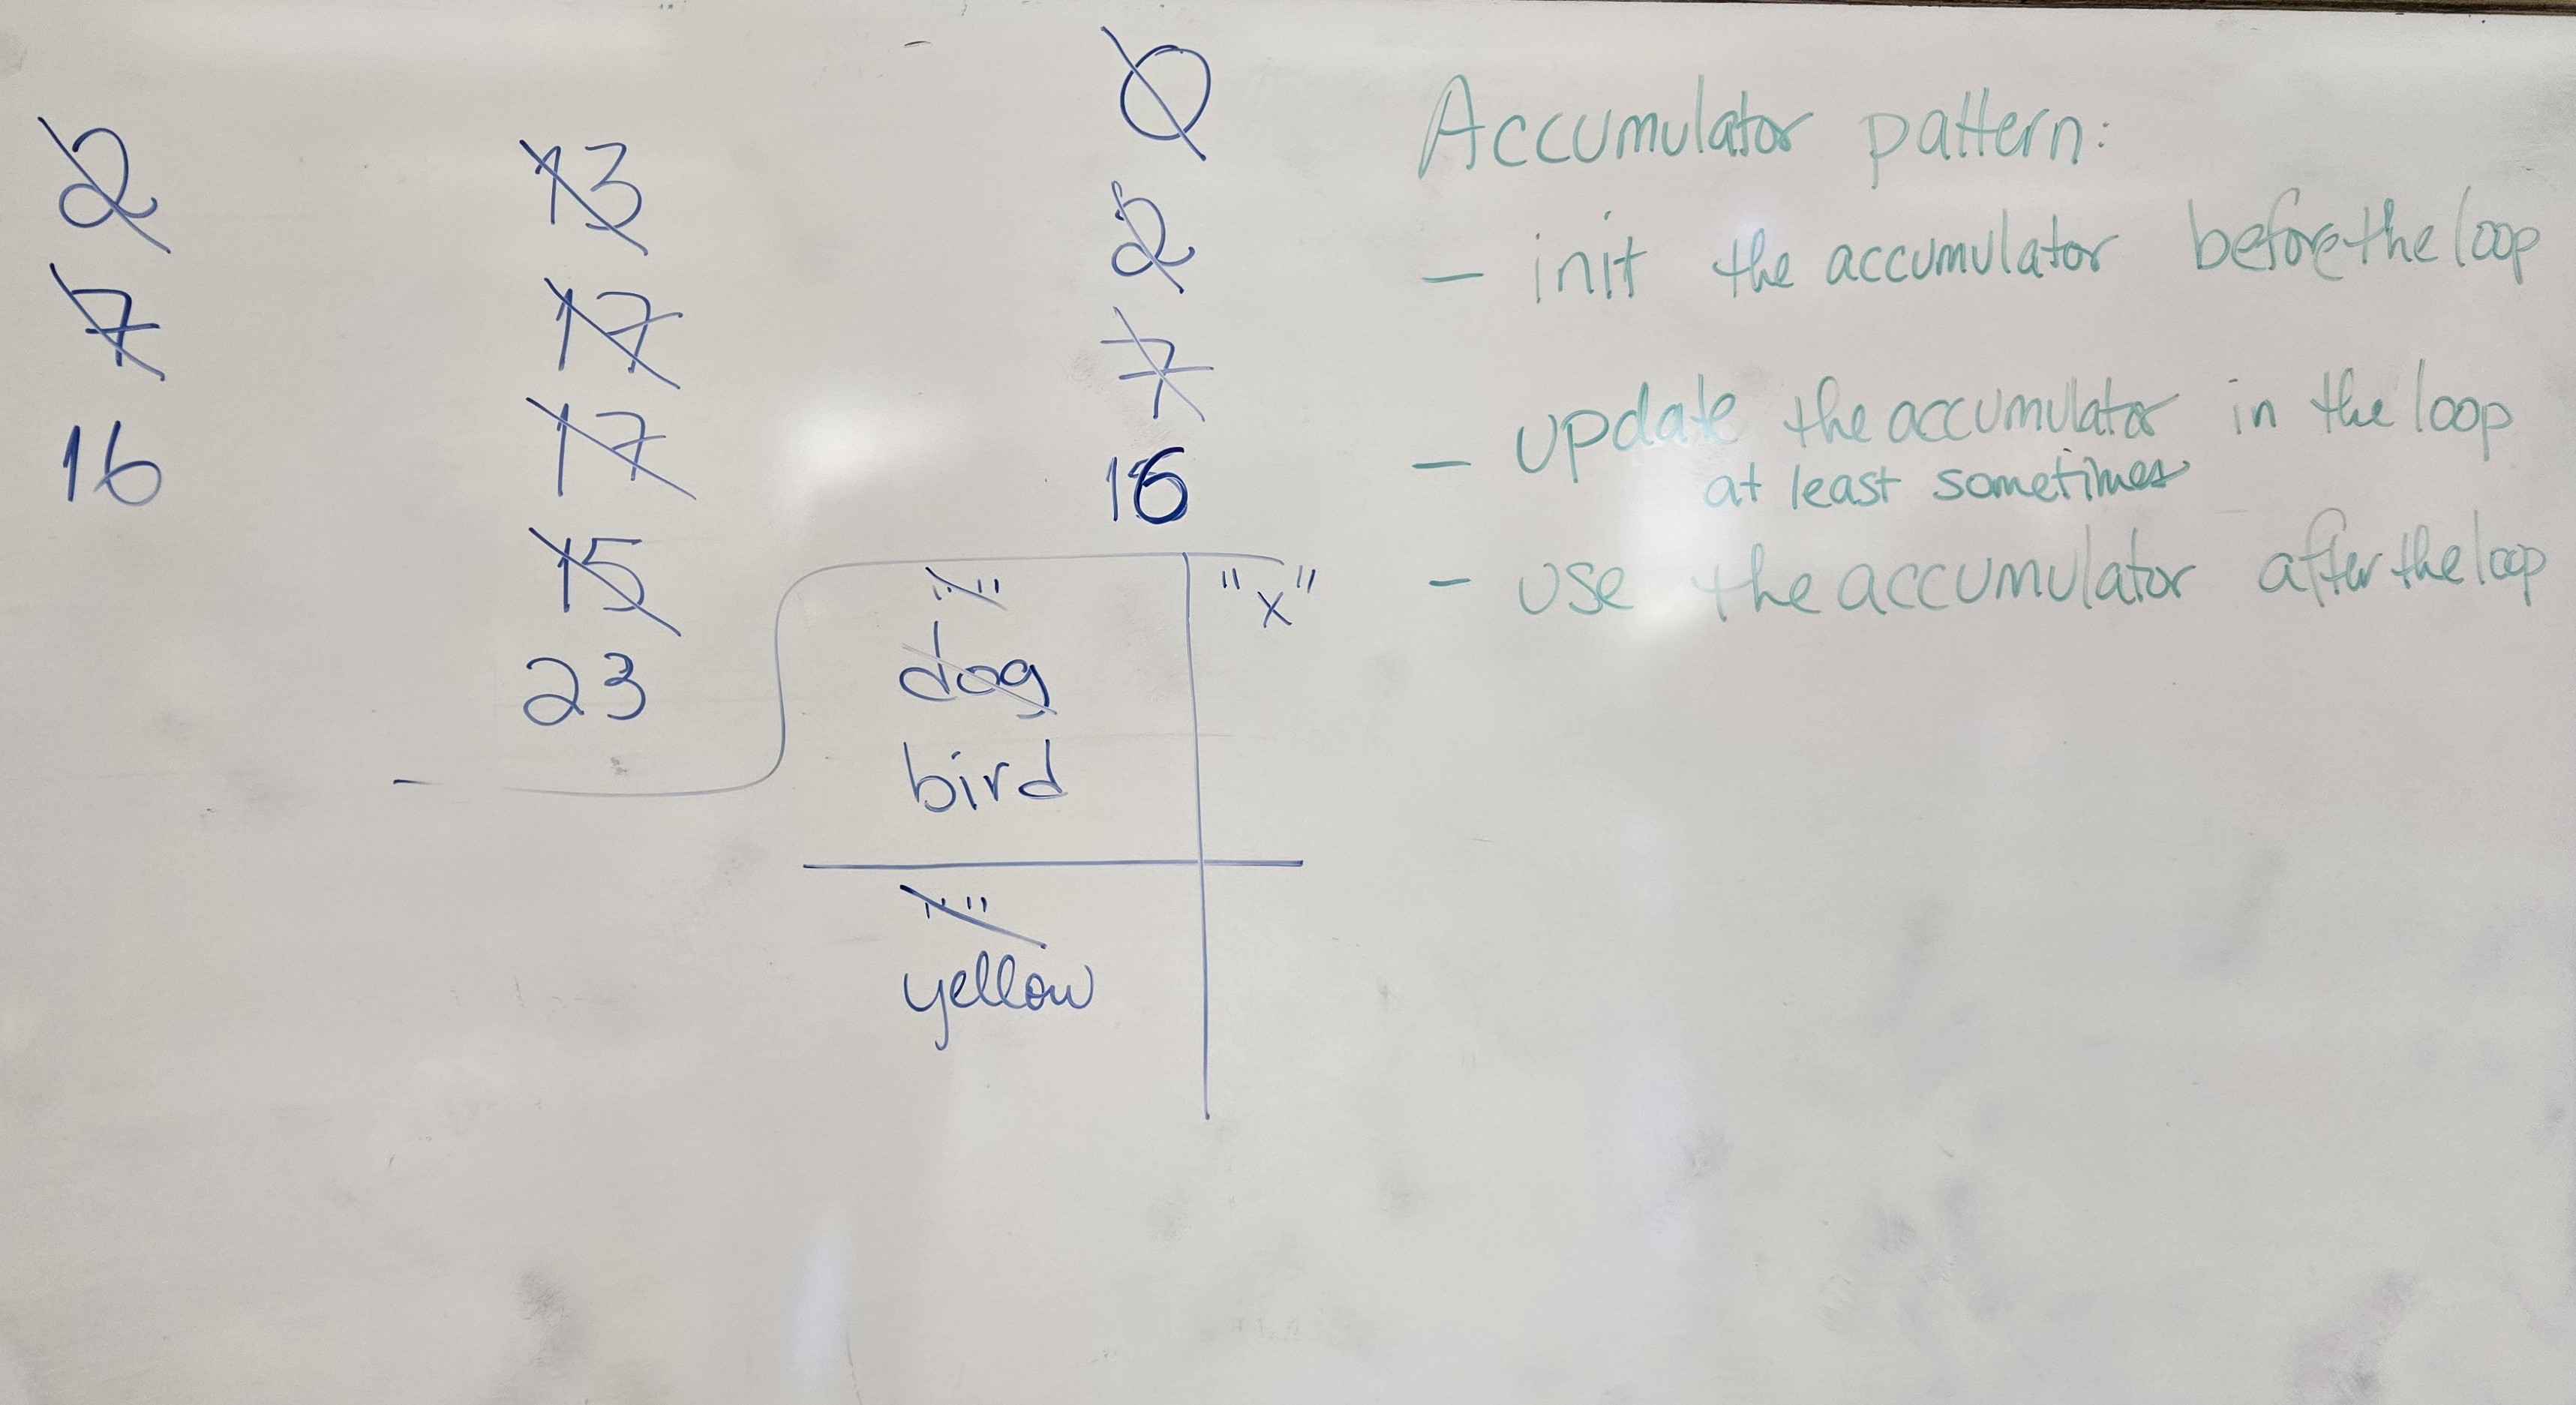 2
7
16
13
17
17
15
23
0
2
7
16
""
dog
bird
"x"
""
yellow
Accumulator pattern:
- init the accumulator before the loop
- update the accumulator in the loop
at least sometimes
- use the accumulator after the loop